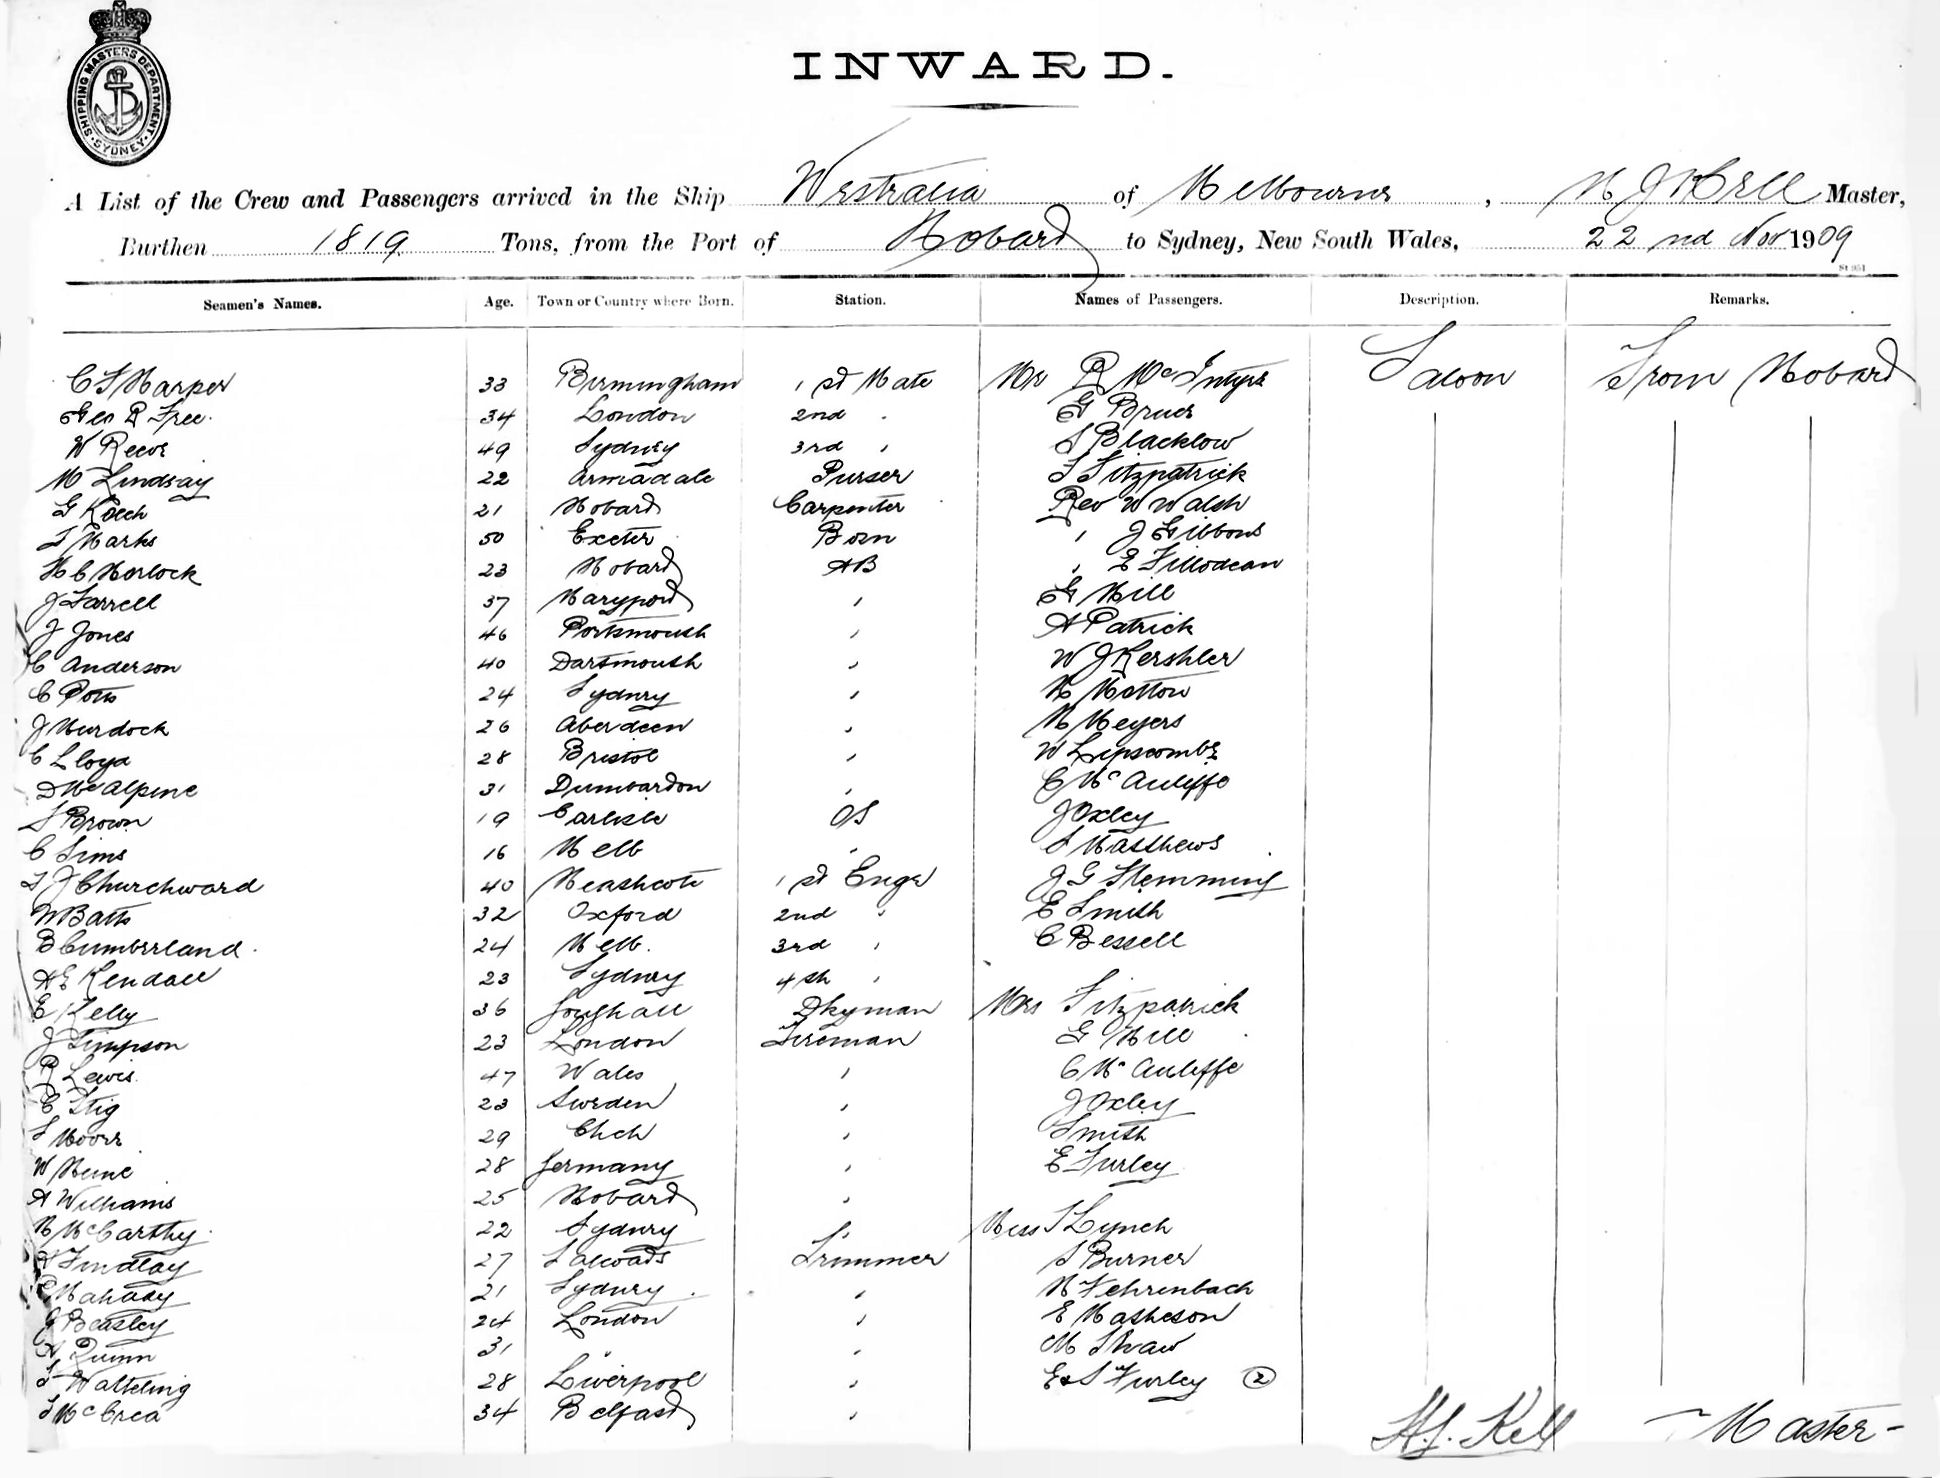 SHIPPING MASTERS DEPARTMENT · SYDNEY ·
INWARD.
A List of the Crew and Passengers arrived in the Ship Westralia of Melbourne, H J Kell Master,
Burthen 1819 Tons, from the Port of Hobart to Sydney, New South Wales, 22nd Nov 1909
Seamen's Names. Age. Town or Country where Born. Station. Names of Passengers. Description. Remarks.
C S Harper 33 Birmingham 1st Mate Mr R McIntyre Saloon From Hobart
Geo R Free 34 London 2nd " G Bruce
W Reeve 49 Sydney 3rd " S Blacklow
M Lindsay 22 Armadale Purser T Fitzpatrick
G Koech 21 Hobart Carpenter Rev W Walsh
T Marks 50 Exeter Bosn " J Gibbons
H C Horlock 23 Hobart AB " E Fillodean
J Farrell 37 Maryport " G Hill
J Jones 46 Portsmouth " A Patrick
C Anderson 40 Dartmouth " W J Kershler
C Potts 24 Sydney " H Motton
J Murdock 26 Aberdeen " H Meyers
C Lloyd 28 Bristol " W Lipscombe
D McAlpine 31 Dumbarton " C McAuliffe
S Brown 19 Carlisle OS J Oxley
C Sims 16 Melb " S Matthews
T J Churchward 40 Heathcote 1st Engr J G Flemming
W Batts 32 Oxford 2nd " E Smith
B Cumberland 24 Melb. 3rd " C Bessell
A E Kendall 23 Sydney 4th "
E Kelly 36 Dkyman Mrs Fitzpatrick
J Simpson 23 London Fireman G Hill
R Lewis 47 Wales " C McAuliffe
C Stig 23 Sweden " J Oxley
S Moore 29 Chch " Smith
W Heine 28 Germany " E Furley
A Williams 25 Hobart "
H McCarthy 22 Sydney " Miss T Lynch
A Findlay 27 Trimmer S Burner
P Mahady 21 Sydney " H Fehrenbach
G Beasley 24 London " E Matheson
A Quinn 31 " " M Shaw
S Watteling 28 Liverpool " E & S Furley (2)
T McCrea 34 Belfast "
H.J. Kell Master